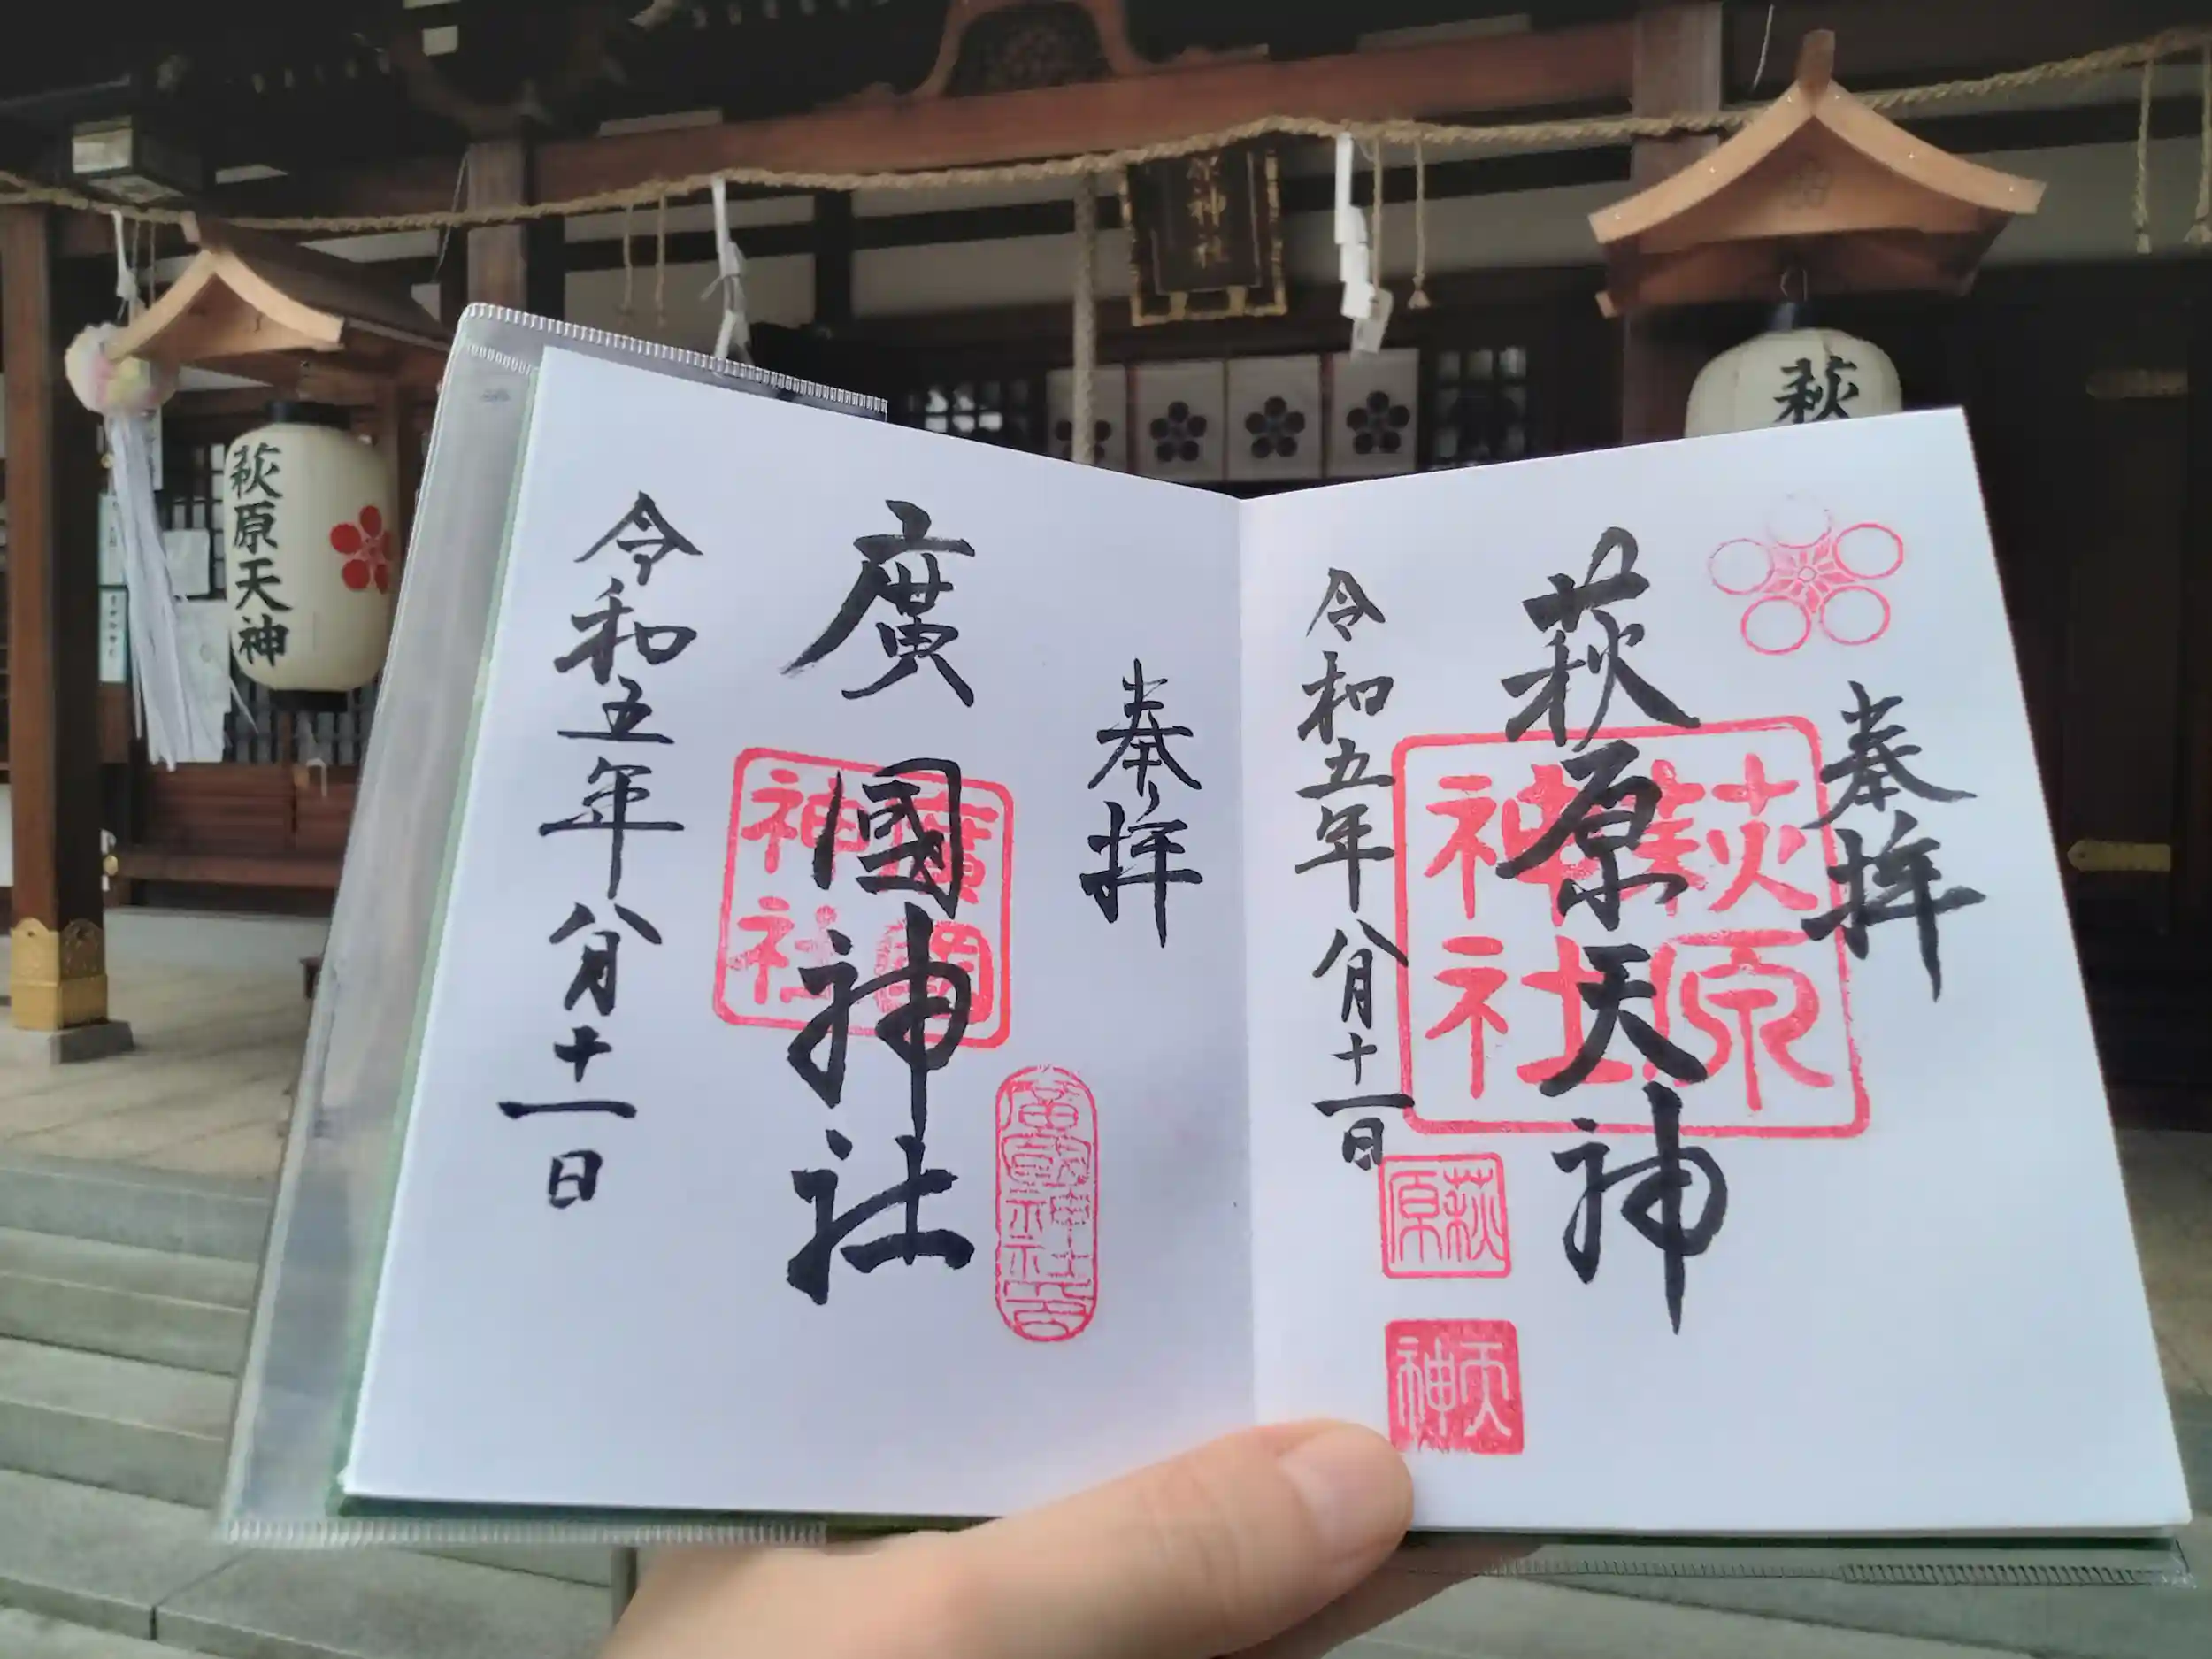 奉拝
萩原天神
令和五年八月十一日
萩原神社
萩原
天神
奉拝
廣國神社
令和五年八月十一日
廣國神社
萩原天神
萩
原神社